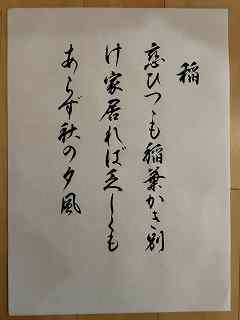 稲
恋ひつゝも稲葉かき別
け家居れば乏しくも
あらず秋の夕風